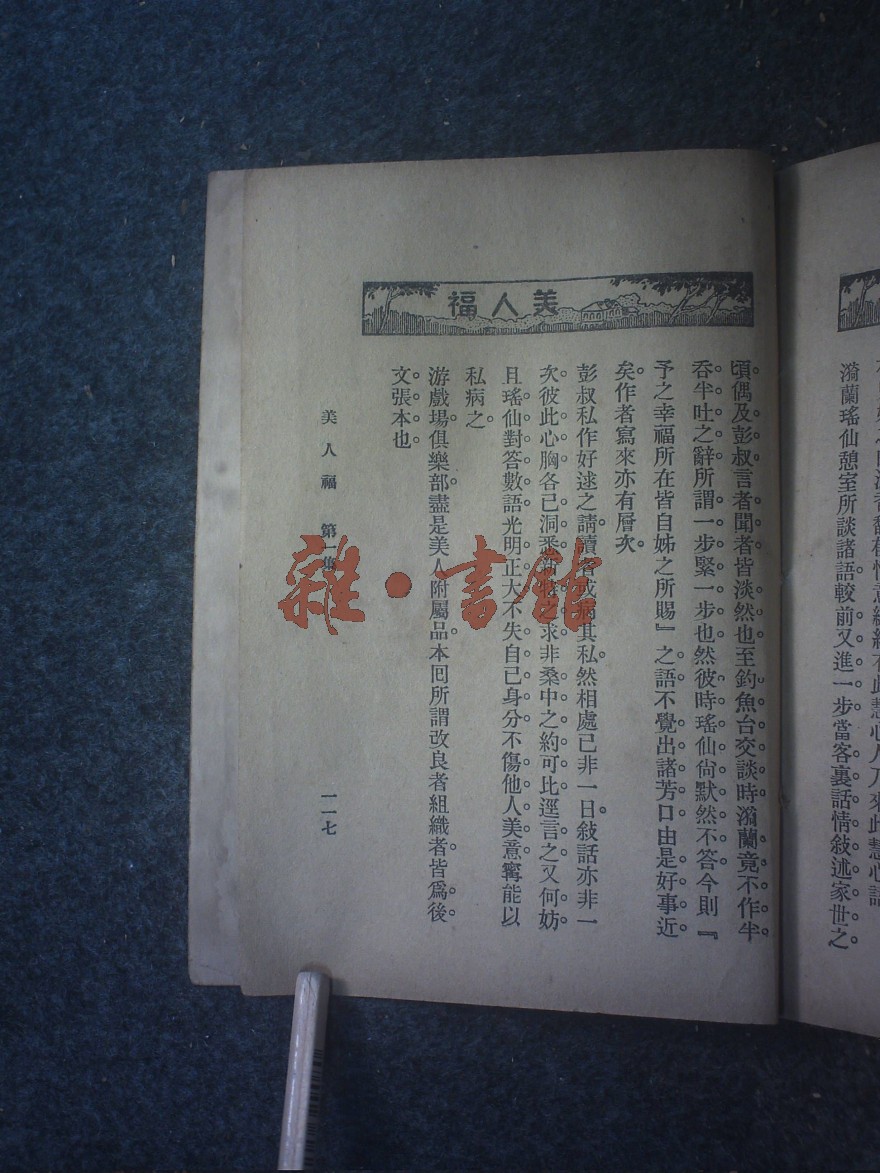 瀚蘭瑤仙憩室所談諸語較前又進一步當客裏話情敍述家世之。
美人福
頃偶及彭叔言者聞者皆淡然也至釣魚台交談時瀚蘭竟不作半
吞半吐之辭所謂一步緊一步也然彼時瑤仙尙默然不答今則『
予之幸福所在皆自姊之所賜』之語不覺出諸芳口由是好事近
矣作者寫來亦有層次。
彭叔私作好逑之請讀者或病其私然相處已非一日敍話亦非一
次彼此心胸各已洞悉之求非桑中之約可比逕言之又何妨
且瑤仙對答數語光明正大不失自己身分不傷他人美意寗能以
私病之。
游戲場俱樂部盡是美人附屬品本囘所謂改良者組織者皆爲後
文張本也
美人福 第一集
一一七
雜·書館